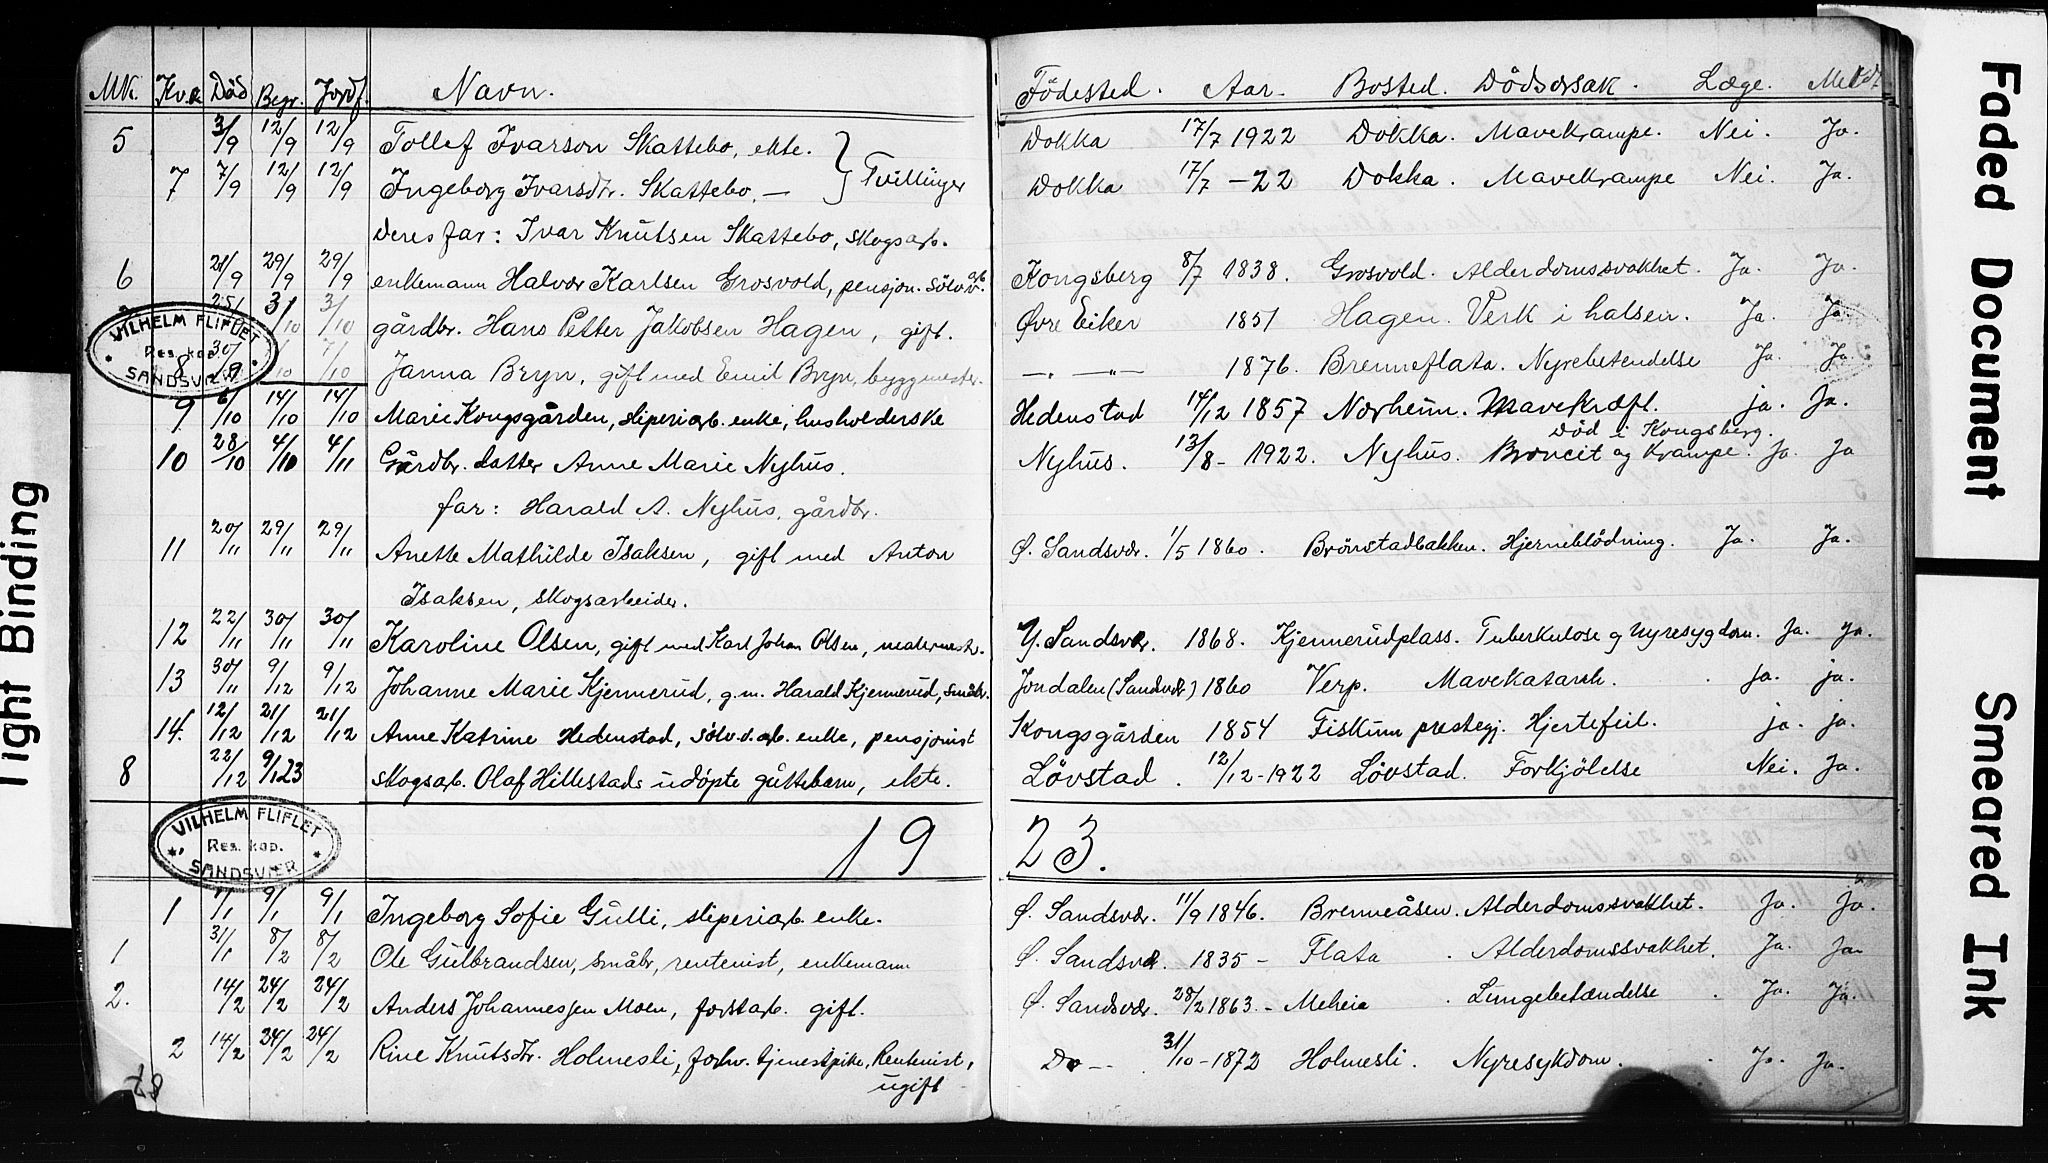 MK. Kv.k Död Begr. Jordf. Navn. Födested. Aar. Bosted. Dödsorsak. Læge. Meldt
5 3/9 12/9 12/9 Tollef Ivarson Skattebo, ekte. Dokka 17/7 1922 Dokka. Mavekrampe. Nei. Ja.
7 7/9 12/9 12/9 Ingeborg Ivarsdtr. Skattebo, — } Tvillinger Dokka 17/7 -22 Dokka. Mavekrampe Nei. Ja.
deres far: Ivar Knutsen Skattebo, skogsarb.
6 21/9 29/9 29/9 enkemann Halvor Karlsen Grosvold, pensjon. sölvv.arb. Kongsberg 8/7 1838. Grosvold. Alderdomssvakhet. Ja. Ja.
25/ 3/10 3/10 gårdbr. Hans Petter Jakobsen Hagen, gift. Øvre Eiker 1851 Hagen. Verk i halsen. Ja. Ja.
8 30/9 /10 7/10 Janna Bryn, gift med Emil Bryn, byggmester. —„— —„— 1876. Brenneflata. Nyrebetendelse Ja. Ja.
VILHELM FLIFLET
Res. kap.
SANDSVÆR
9 6/10 14/10 14/10 Marie Kongsgården, sliperiarb. enke, husholderske Hedenstad 14/12 1857 Norheim. Mavekræft. ja. Ja.
Död i Kongsberg.
10 28/10 4/10 4/11 Gårdbr. datter Anne Marie Nyhus. Nyhus. 13/8 - 1922. Nyhus. Broncit og Krampe. Ja. Ja
far: Harald A. Nyhus, gårdbr.
11 20/11 29/11 29/11 Anette Mathilde Isaksen, gift med Anton Ø. Sandsvær. 1/5 1860. Brönstadbakken. Hjerneblödning. Ja. Ja.
Isaksen, skogsarbeider.
12 22/11 30/11 30/11 Karoline Olsen, gift med Karl Johan Olsen, Y. Sandsvær. 1868. Kjennerudplass. Tuberkulose og Nyresygdom. Ja. Ja.
13 30/11 9/12 9/12 Johanne Marie Kjennerud, g.m. Harald Kjennerud, småbr. Jondalen (Sandsvær) 1860 Verp. Mavekatarrh. ja. ja.
14. 12/12 21/12 21/12 Anne Katrine Hedenstad, sölv.v.arb. enke, pensjonist Kongsgården 1854 Fiskum prestegj. Hjertefeil. ja. ja.
8 22/12 9/1 23 skogsarb. Olaf Hillestads udöpte guttebarn, ekte. Lövstad. 12/12 - 1922 Lövstad. Forkjölelse Nei. Ja.
VILHELM FLIFLET
Res. kap.
SANDSVÆR
19 23.
1 1/1 9/1 9/1 Ingeborg Sofie Gulli, sliperiarb. enke. Ø. Sandsvær. 11/9 1846. Brenneåsen. Alderdomssvakhet. Ja. Ja.
1 31/1 8/2 8/2 Ole Gulbrandsen, småbr, rentenist, enkemann Ø. Sandsvær. 1835 - Flata. Alderdomssvakhet. Ja. Ja
2. 14/2 24/2 24/2 Anders Johannessen Moen, forstarb. gift. Ø. Sandsvær. 28/2 1863. - Meheia. Lungebetændelse. Ja. Ja.
2 14/2 24/2 24/2 Rine Knutsdtr. Holmesli, forhv. tjenestpike, Rentenist, Do — 31/10 - 1872 Holmesli. Nyresykdom. Ja. Ja.
ugift
Tight Binding
Faded Document
Smeared Ink